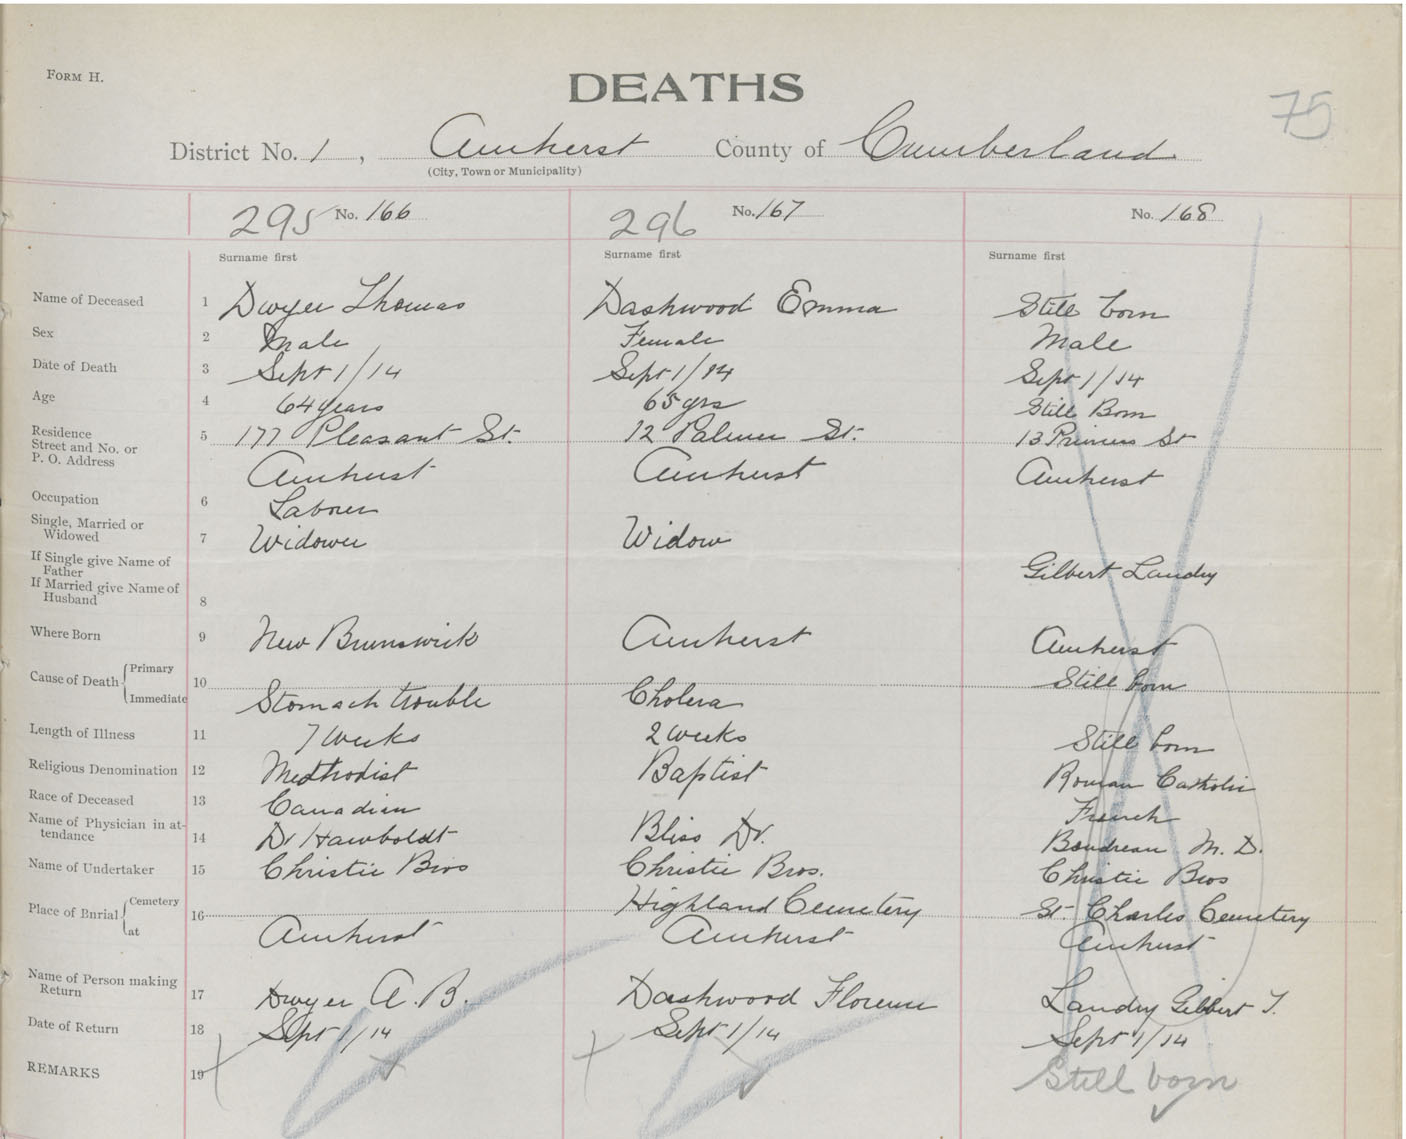 FORM H.
DEATHS
75
District No. 1, Amherst County of Cumberland
(City, Town or Municipality)
295 No. 166 296 No. 167 No. 168
Surname first Surname first Surname first
Name of Deceased 1 Dwyer Thomas Dashwood Emma Still born
Sex 2 Male Female Male
Date of Death 3 Sept 1/14 Sept 1/14 Sept 1/14
Age 4 64 years 65 yrs Still Born
Residence
Street and No. or 5 177 Pleasant St. 12 Palmer St. 13 Princess St
P. O. Address
Amherst Amherst Amherst
Occupation 6 Laborer
Single, Married or
Widowed 7 Widower Widow
If Single give Name of
Father Gilbert Landry
If Married give Name of
Husband 8
Where Born 9 New Brunswick Amherst Amherst
Cause of Death { Primary 10 Still born
Immediate Stomach trouble Cholera
Length of Illness 11 7 Weeks 2 weeks Still born
Religious Denomination 12 Methodist Baptist Roman Catholic
Race of Deceased 13 Canadian French
Name of Physician in at-
tendance 14 Dr Hawboldt Bliss Dr. Boudreau M. D.
Name of Undertaker 15 Christie Bros Christie Bros. Christie Bros
Place of Burial { Cemetery 16 Highland Cemetery St. Charles Cemetery
at Amherst Amherst Amherst
Name of Person making
Return 17 Dwyer A. B. Dashwood Florence Landry Gilbert T.
Date of Return 18 Sept 1/14 Sept 1/14 Sept 1/14
REMARKS 19 Still born